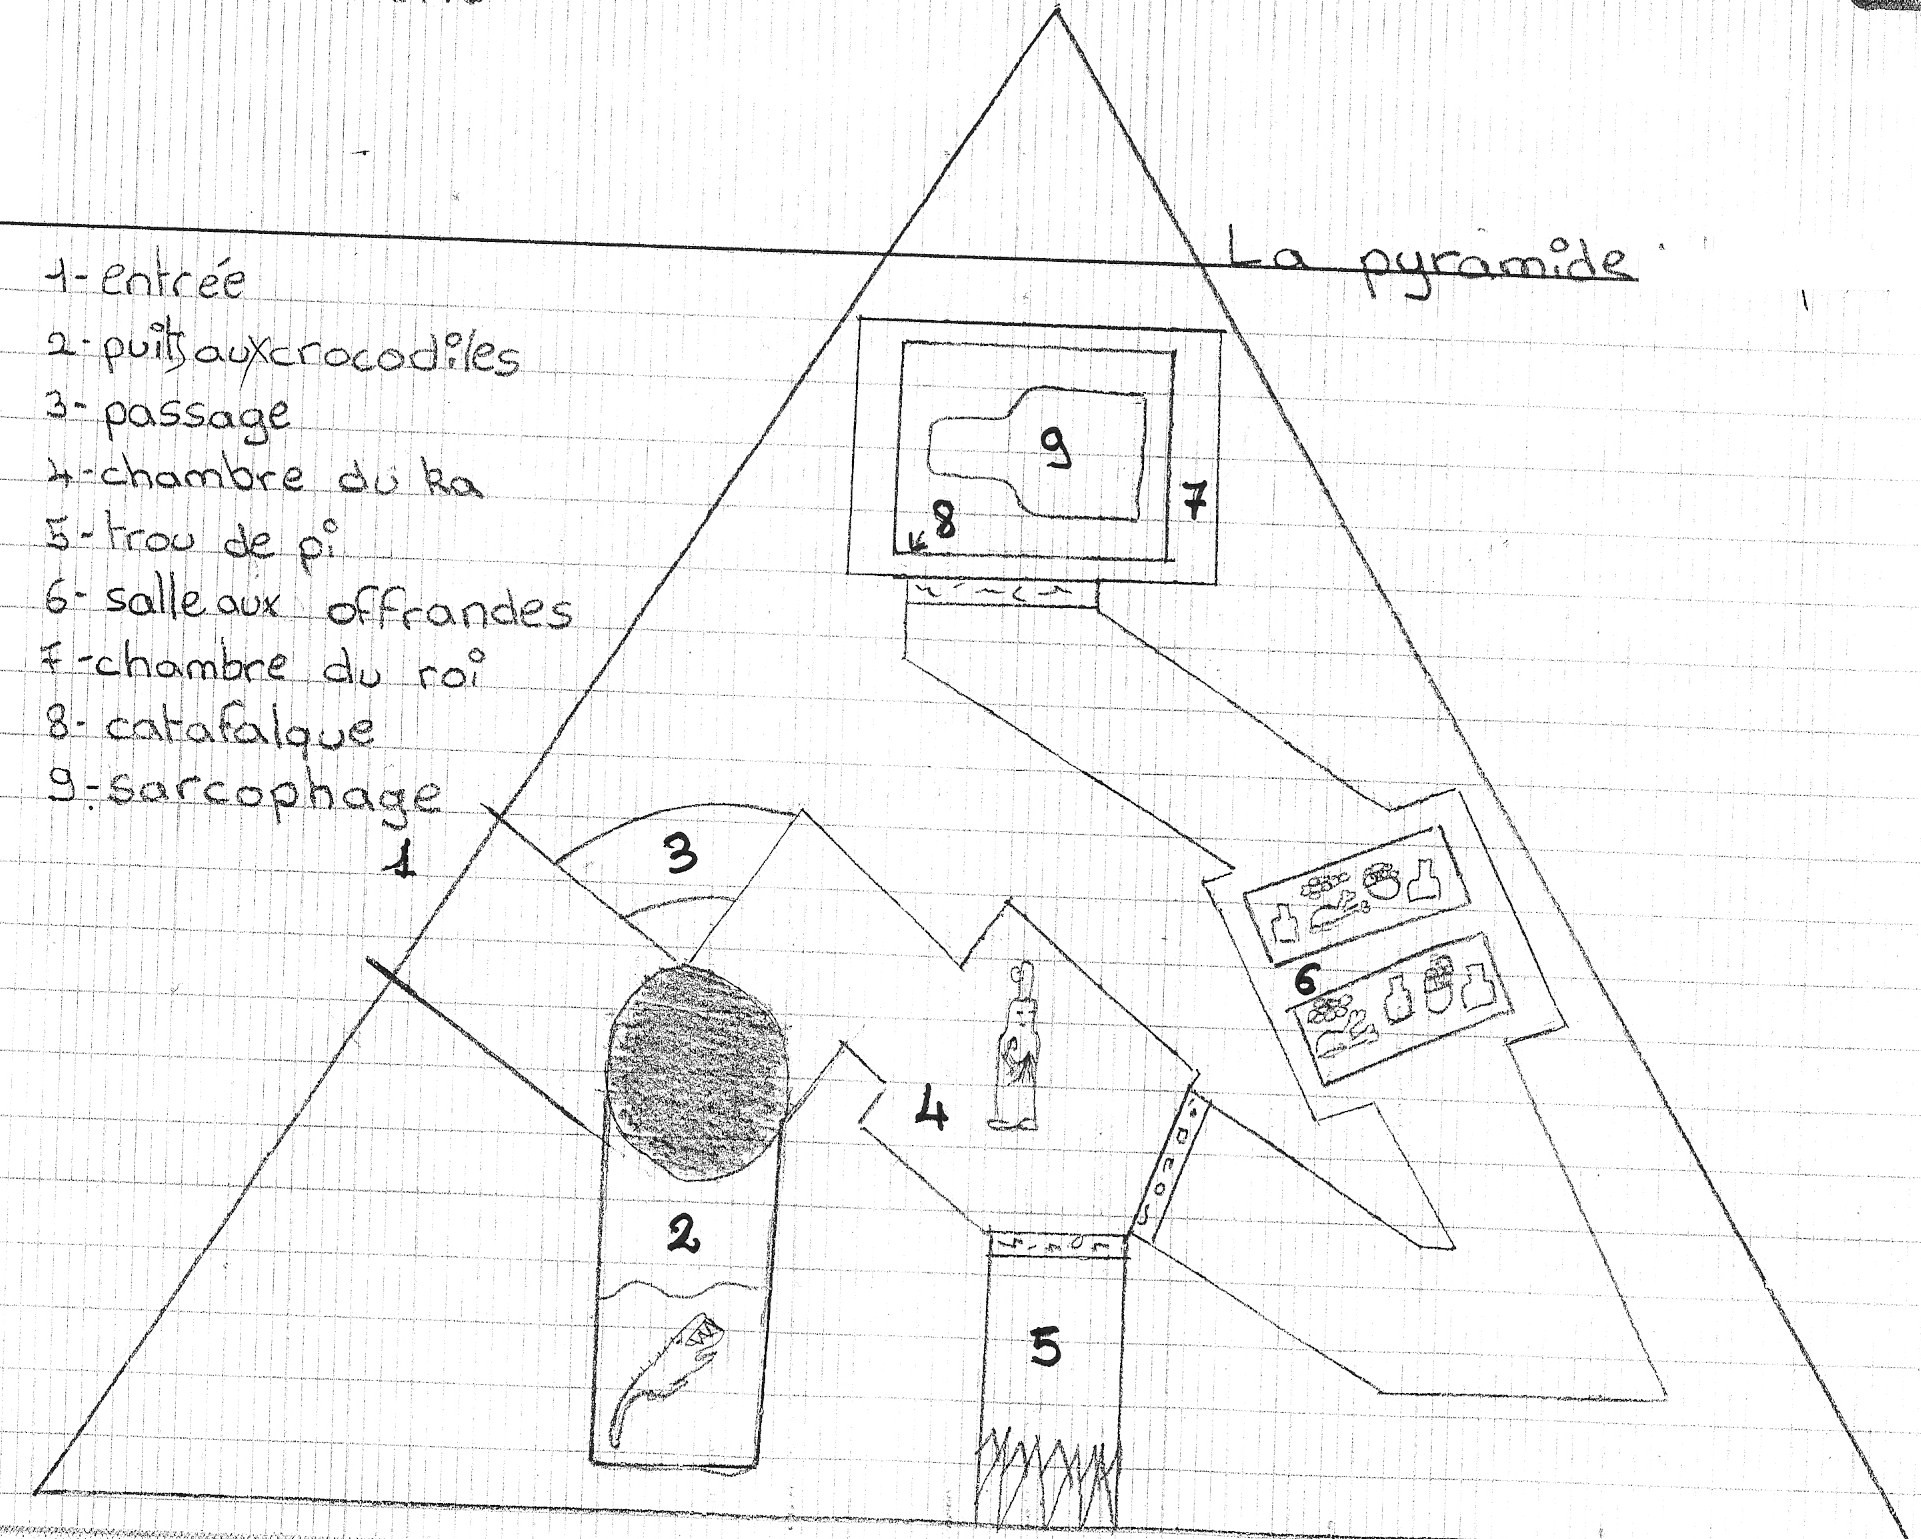 La pyramide
1- entrée
2- puits aux crocodiles
3- passage
4- chambre du ka
5- trou de pi
6- salle aux offrandes
7- chambre du roi
8- catafalque
9- sarcophage
9
7
8
3
1
6
4
2
5